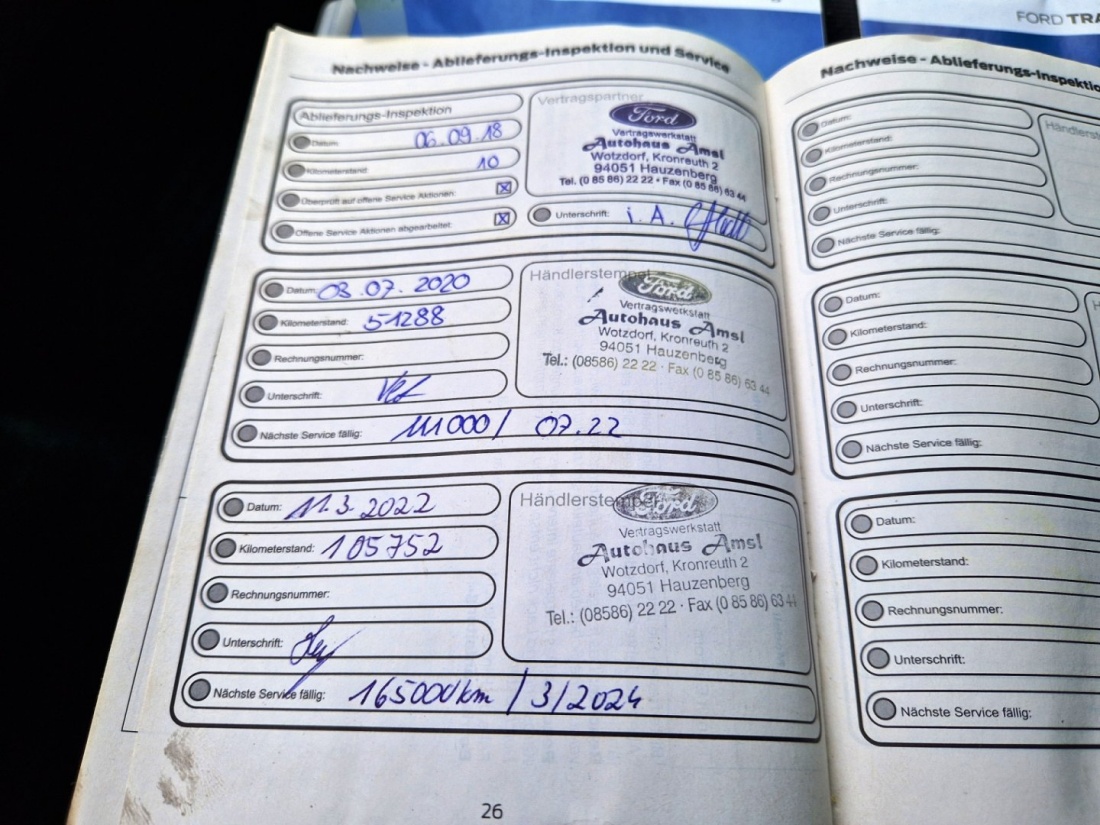 FORD TRA
Nachweise - Ablieferungs-Inspektion und Service
Ablieferungs-Inspektion
Datum: 06.09.18
Kilometerstand: 10
Überprüft auf offene Service Aktionen: X
Offene Service Aktionen abgearbeitet: X
Vertragspartner
Ford
Vertragswerkstatt
Autohaus Amsl
Wotzdorf, Kronreuth 2
94051 Hauzenberg
Tel. (0 85 86) 22 22 • Fax (0 85 86) 63 44
Unterschrift: i. A.
Datum: 03.07.2020
Kilometerstand: 51288
Rechnungsnummer:
Unterschrift:
Händlerstempel
Ford
Vertragswerkstatt
Autohaus Amsl
Wotzdorf, Kronreuth 2
94051 Hauzenberg
Tel.: (08586) 22 22 · Fax (0 85 86) 63 44
Nächste Service fällig: 111000 / 07.22
Datum: 11.3.2022
Kilometerstand: 105752
Rechnungsnummer:
Unterschrift:
Händlerstempel
Ford
Vertragswerkstatt
Autohaus Amsl
Wotzdorf, Kronreuth 2
94051 Hauzenberg
Tel.: (08586) 22 22 · Fax (0 85 86) 63 44
Nächste Service fällig: 165000km / 3/2024
26
Nachweise - Ablieferungs-Inspektio
Datum:
Kilometerstand:
Rechnungsnummer:
Unterschrift:
Nächste Service fällig:
Händlerst
Datum:
Kilometerstand:
Rechnungsnummer:
Unterschrift:
Nächste Service fällig:
H
Datum:
Kilometerstand:
Rechnungsnummer:
Unterschrift:
Nächste Service fällig: